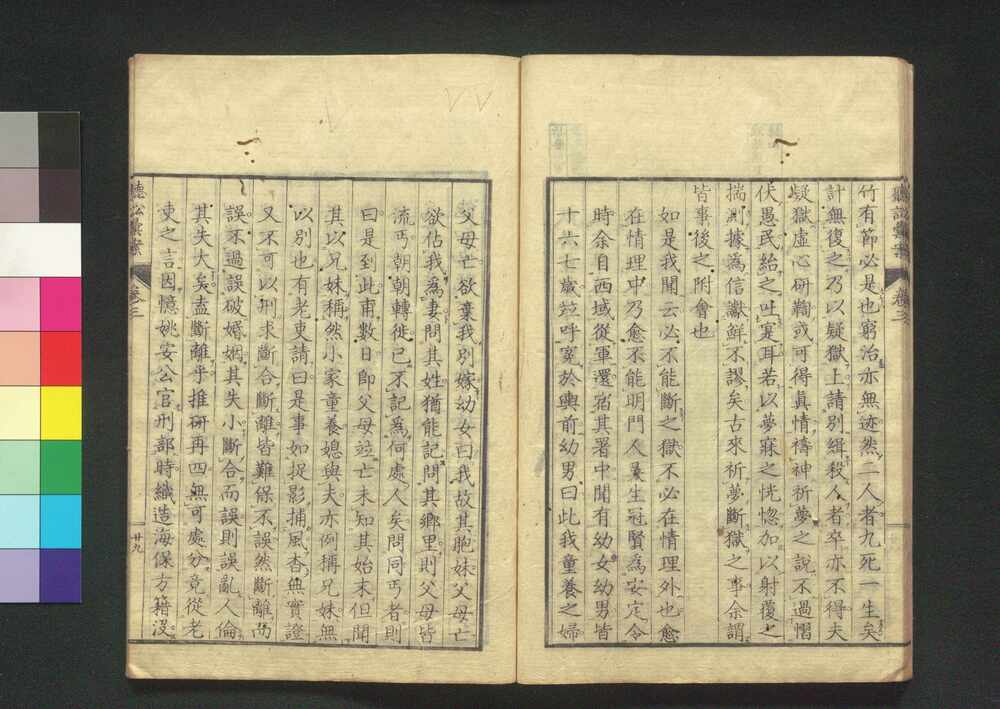 竹有節必是也窮治亦無迹然二人者九死一生矣
計無復之乃以疑獄上請別緝殺人者卒亦不得夫
疑獄虛心研鞫或可得眞情禱神祈夢之說不過慴
伏愚民紿之吐寔耳若以夢寐之恍惚加以射覆之
揣測據為信讞鮮不謬矣古來祈夢斷獄之事余謂
皆事後之附會也
如是我聞云必不能斷之獄不必在情理外也愈
在情理中乃愈不能明門人吳生冠賢為安定令
時余自西域從軍還宿其署中聞有幼女幼男皆
十六七歲竝呼寃於輿前幼男曰此我童養之婦
聽訟彙案 卷三
父母亡欲棄我別嫁幼女曰我故其胞妹父母亡
欲佔我為妻問其姓猶能記問其鄉里則父母皆
流丐朝朝轉徙已不記為何處人矣問同丐者則
曰是到此甫數日即父母竝亡未知其始末但聞
其以兄妹稱然小家童養媳與夫亦例稱兄妹無
以別也有老吏請曰是事如捉影捕風杳無實證
又不可以刑求斷合斷離皆難保不誤然斷離而
誤不過誤破婚姻其失小斷合而誤則誤亂人倫
其失大矣盍斷離乎推研再四無可處分竟從老
吏之言因憶姚安公官刑部時織造海保方籍沒
聽訟彙案 卷三 廿九